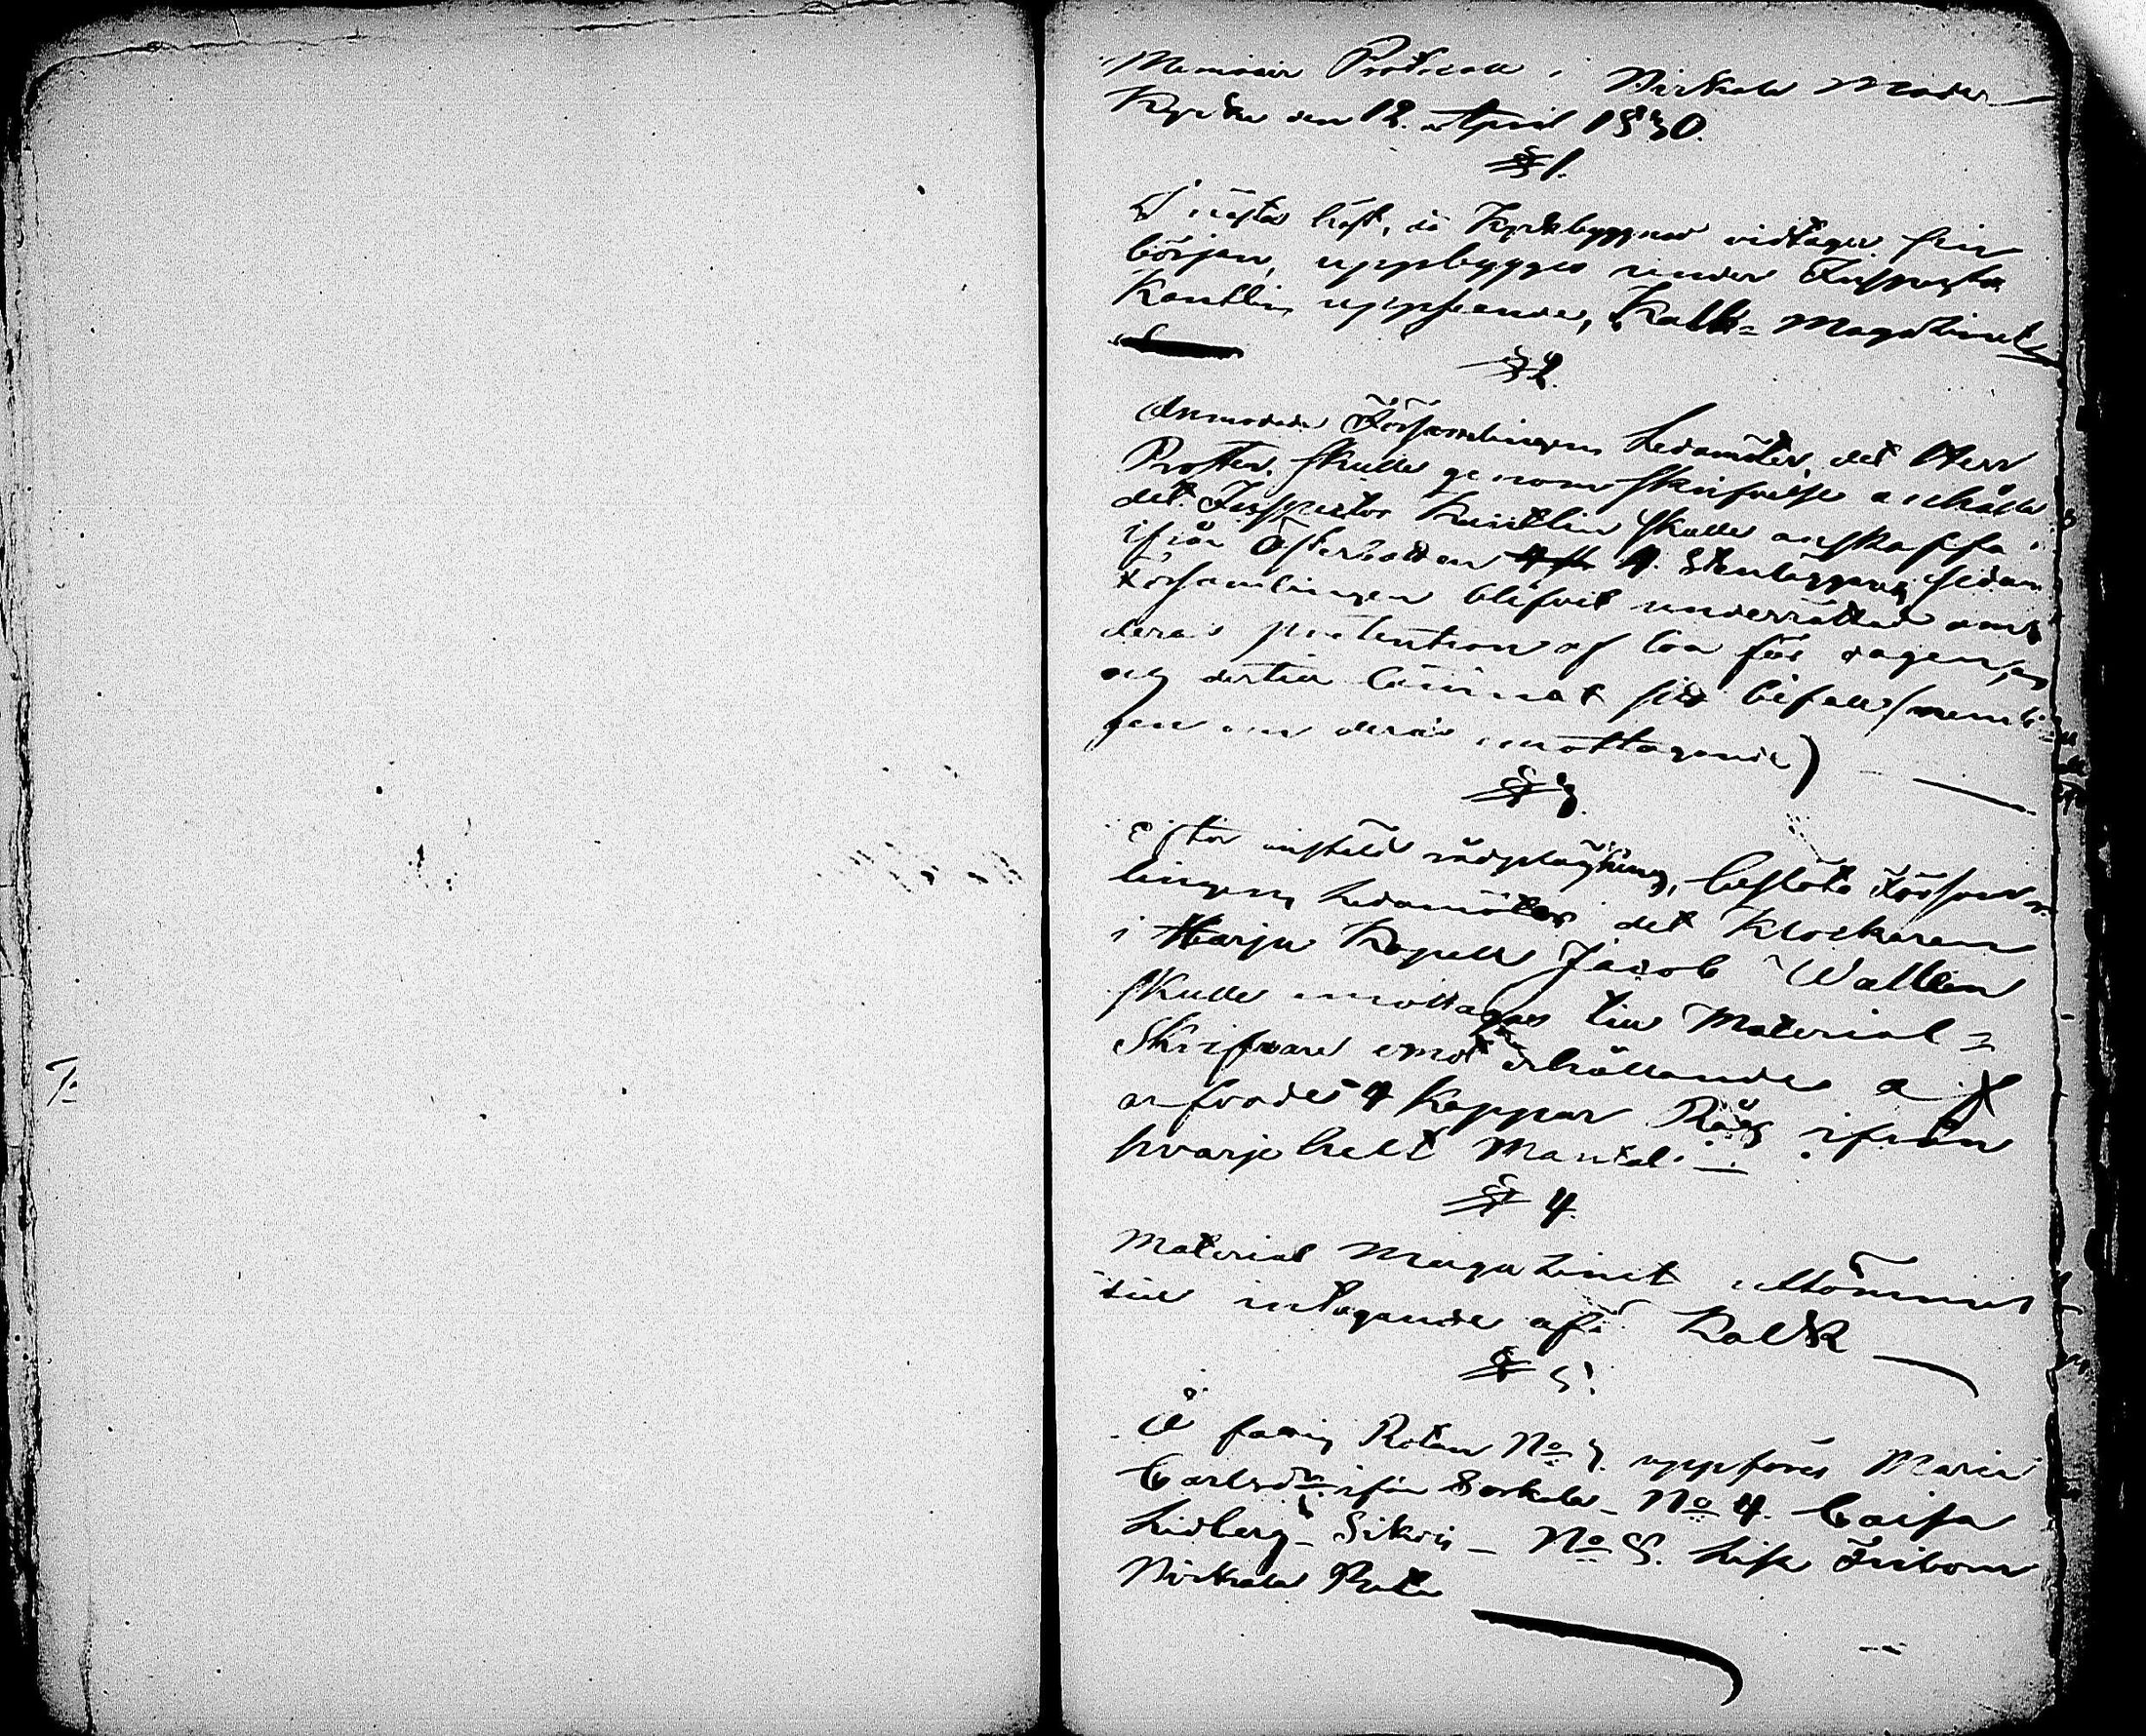 Memoir Protocoll i Birkala Moder
Kyrka den 12. April 1830.
§ 1.
I nästa höst, då Kyrkobyggnad vidtager sin
början, uppbygges under Inspector
uppseende, Kalk= Magazinet
§ 2.
Anmodade Församlingens Ledamöter, det Herr
Prosten skulle genom skrifvelse anhålla
det Inspector skulle anskaffa
ifrån Österbotten 4 sedan
Församlingen blifvit underrättad om
deras pretention af lön för dagen,
och dertill lämnat sitt bifall (nemli-
gen om deras emottagande)
§ 3.
Efter anstäld rådplägning, beslöto Församm-
lingens Ledamöter det Klockaren
i Harju Kapell Jacob Wallen
skulle emottagas till Material=
Skrifvare emot erhållande af
arfvode 4 Kappar Råg ifrån
hvarje helt Mantal.
§ 4.
Material Magazinet uttömmes
till intagande af Kalk
§ 5.
Å Rotan No 3. uppföres Maria
Carlsdr. ifrån Sorkala - No 4. Caisa
Lidberg - Sikoj - No 5. Lisa Fribom
Birkala